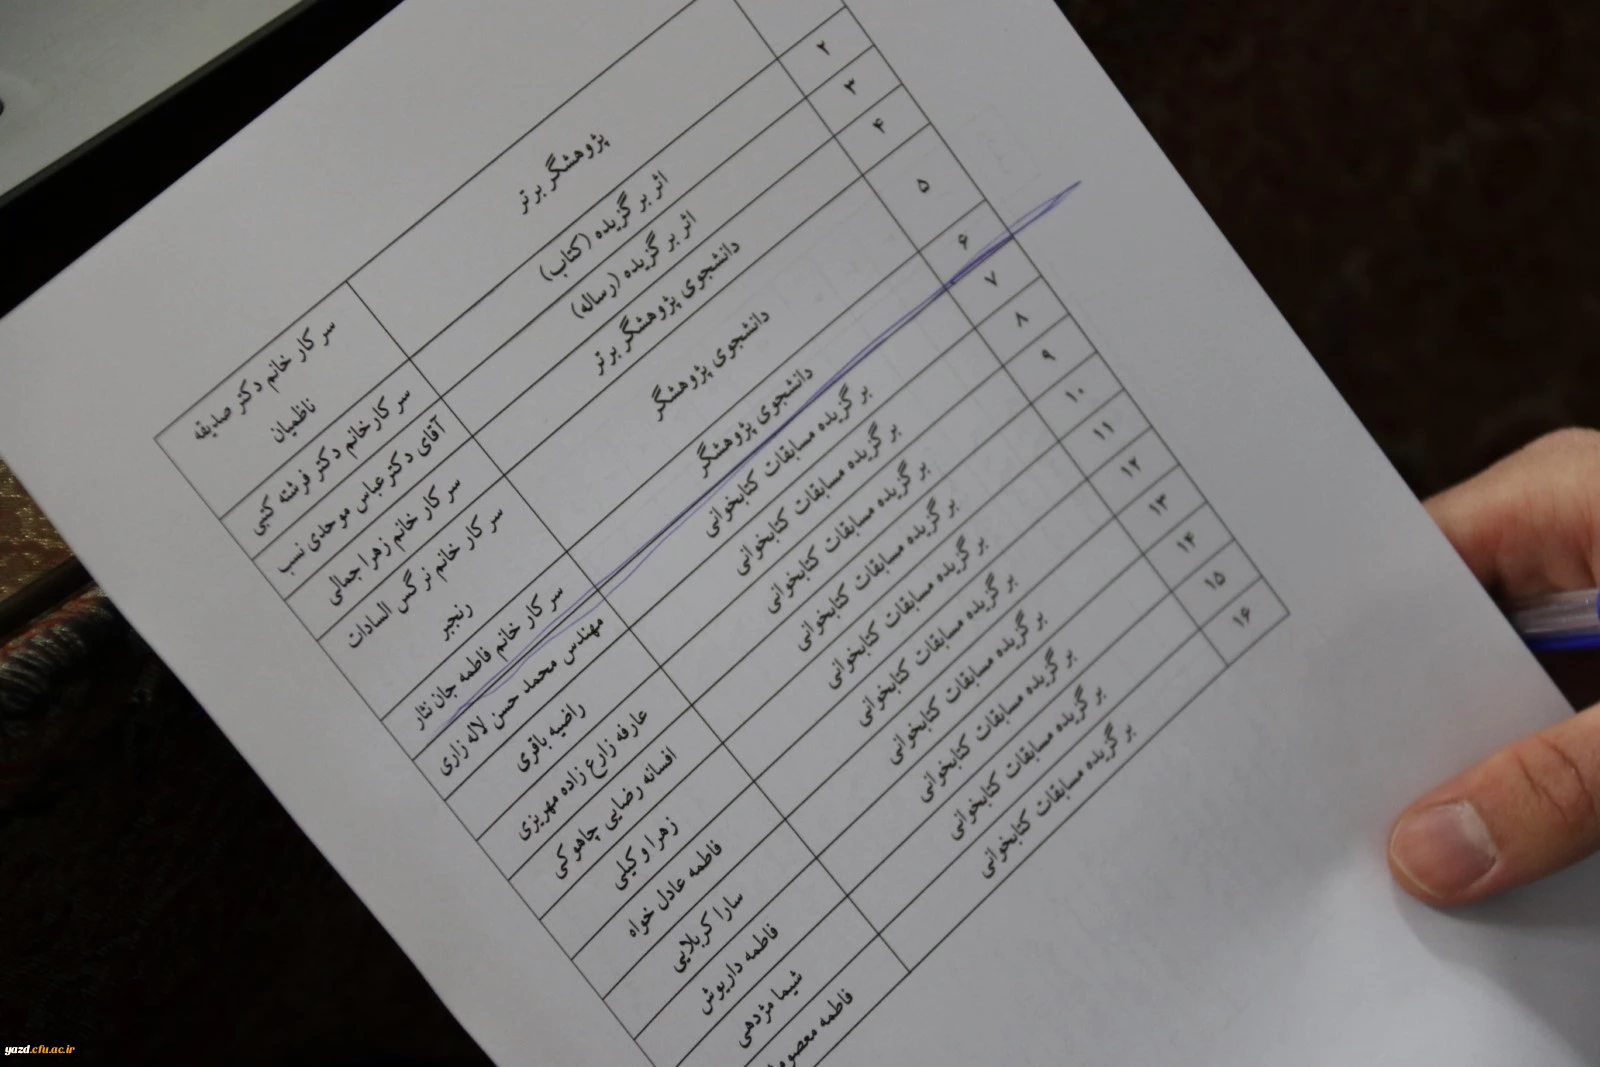 پژوهشگر برتر
سرکار خانم دکتر صدیقه
ناظمیان
۲ اثر برگزیده (کتاب) سرکار خانم دکتر فرشته کتبی
۳ اثر برگزیده (رساله) آقای دکتر عباس موحدی نسب
۴ دانشجوی پژوهشگر برتر سرکار خانم زهرا جمالی
۵ دانشجوی پژوهشگر سرکار خانم نرگس السادات
رنجبر
۶ دانشجوی پژوهشگر سرکار خانم فاطمه جان نثار
۷ برگزیده مسابقات کتابخوانی مهندس محمد حسن لاله زاری
۸ برگزیده مسابقات کتابخوانی راضیه باقری
۹ برگزیده مسابقات کتابخوانی عارفه زارع زاده مهریزی
۱۰ برگزیده مسابقات کتابخوانی افسانه رضایی چاهوکی
۱۱ برگزیده مسابقات کتابخوانی زهرا وکیلی
۱۲ برگزیده مسابقات کتابخوانی فاطمه عادل خواه
۱۳ برگزیده مسابقات کتابخوانی سارا کربلایی
۱۴ برگزیده مسابقات کتابخوانی فاطمه داریوش
۱۵ برگزیده مسابقات کتابخوانی شیما مژدهی
۱۶ برگزیده مسابقات کتابخوانی فاطمه
yazd.cfu.ac.ir